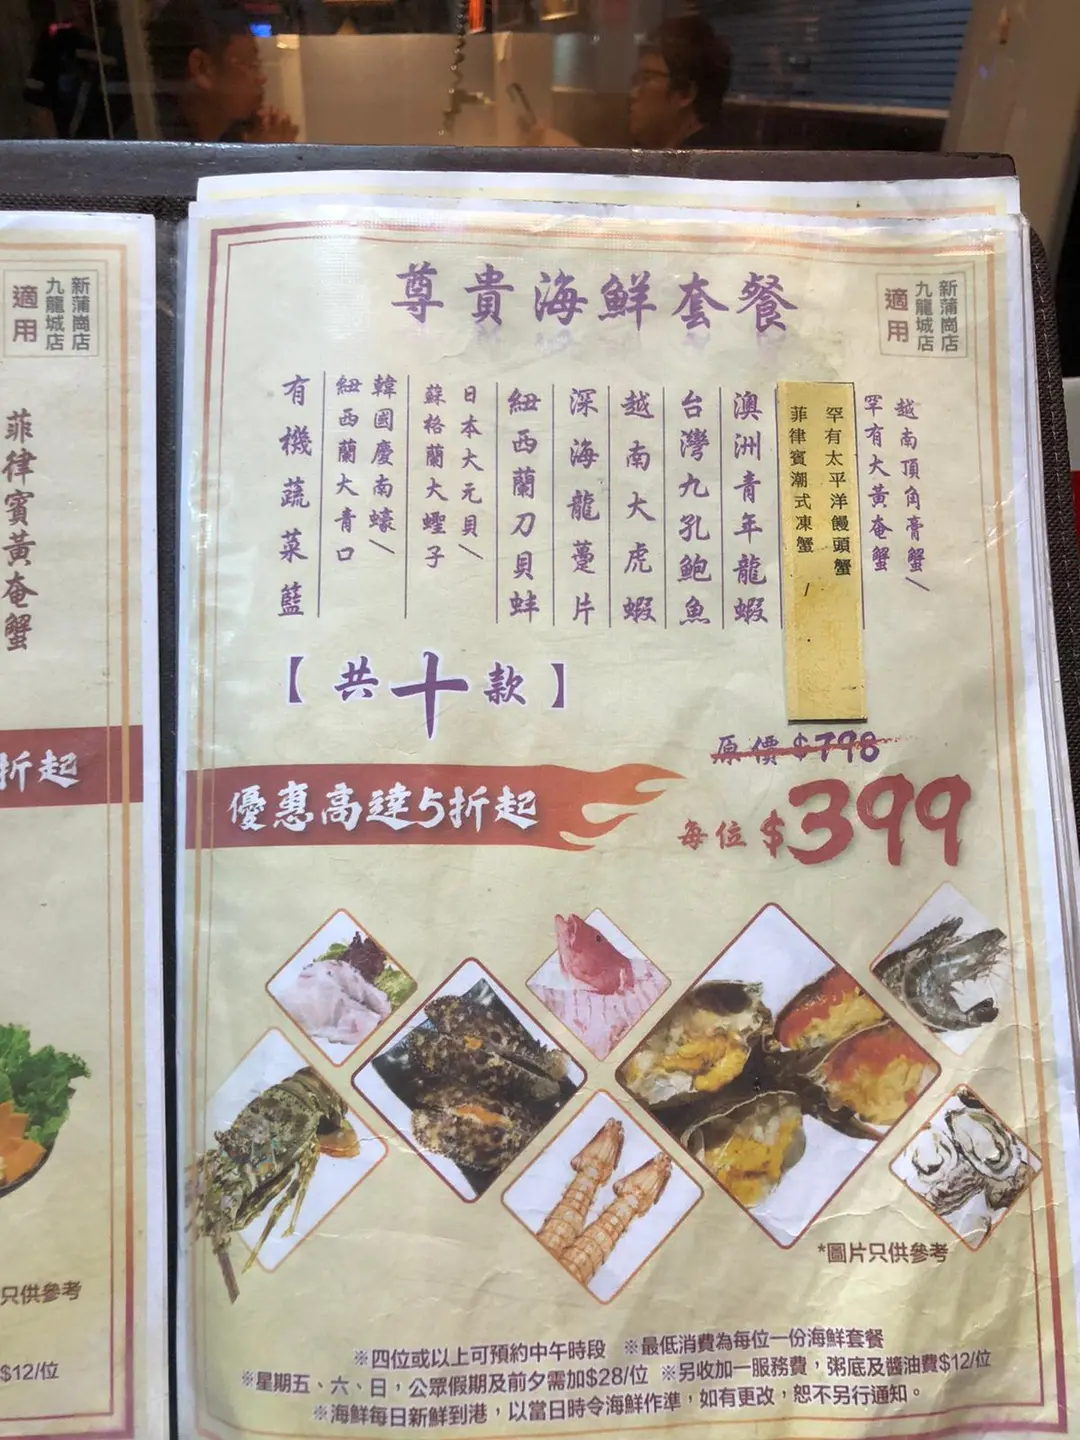 尊貴海鮮套餐
新蒲崗店
九龍城店
適用
越南頂角膏蟹/
罕有大黃奄蟹
罕有太平洋饅頭蟹
菲律賓潮式凍蟹 /
澳洲青年龍蝦
台灣九孔鮑魚
越南大虎蝦
深海龍躉片
紐西蘭刀貝蚌
日本大元貝/
蘇格蘭大蟶子
韓國慶南蠔/
紐西蘭大青口
有機蔬菜籃
【共十款】
原價$798
優惠高達5折起
每位$399
*圖片只供參考
※四位或以上可預約中午時段 ※最低消費為每位一份海鮮套餐
※星期五、六、日，公眾假期及前夕需加$28/位 ※另收加一服務費，粥底及醬油費$12/位
※海鮮每日新鮮到港，以當日時令海鮮作準，如有更改，恕不另行通知。
新蒲崗店
九龍城店
適用
菲律賓黃奄蟹
折起
只供參考
$12/位